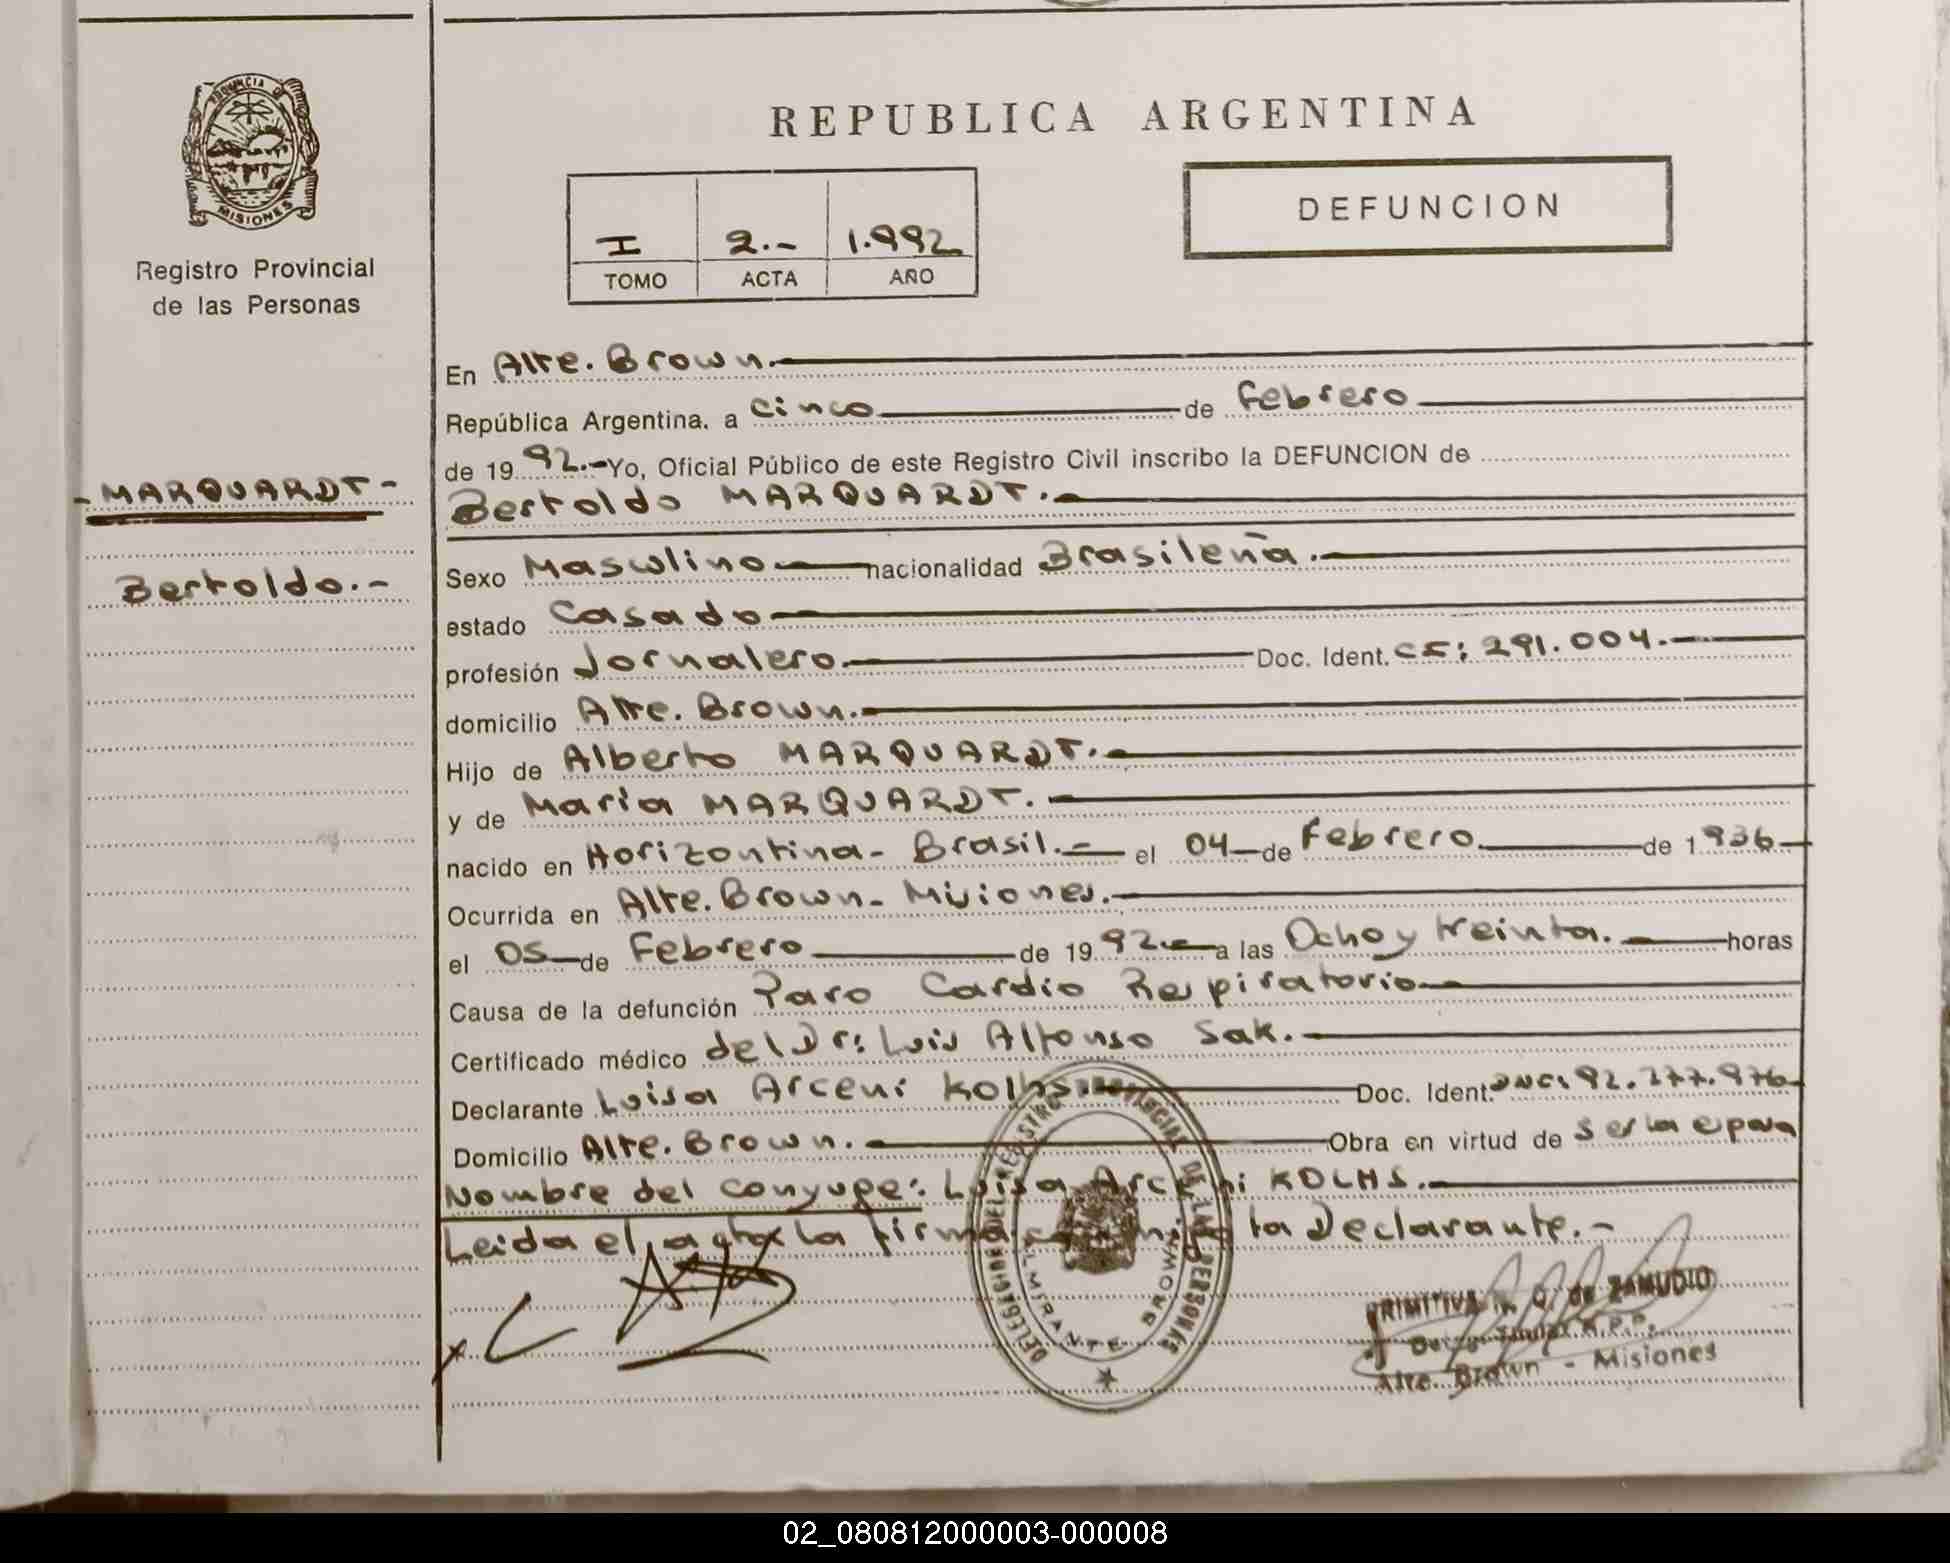 PROVINCIA DE
MISIONES
Registro Provincial
de las Personas
- MARQUARDT -
Bertoldo.-
REPUBLICA ARGENTINA
I 2.- 1.992
TOMO ACTA AÑO
DEFUNCION
En Alte. Brown.
República Argentina, a cinco de Febrero
de 1992.- Yo, Oficial Público de este Registro Civil inscribo la DEFUNCION de
Bertoldo MARQUARDT.
Sexo Masculino nacionalidad Brasileña.
estado Casado
profesión Jornalero. Doc. Ident. CI: 291.004.
domicilio Alte. Brown.
Hijo de Alberto MARQUARDT.
y de Maria MARQUARDT.
nacido en Horizontina - Brasil. el 04 de Febrero de 1936
Ocurrida en Alte. Brown - Misiones.
el 05 de Febrero de 1992 a las Ocho y treinta. horas
Causa de la defunción Paro Cardio Respiratorio
Certificado médico del Dr: Luis Alfonso Sak.
Declarante Luisa Arceni Kolhs Doc. Ident. DNI: 92.277.976
Domicilio Alte. Brown. Obra en virtud de ser la esposa
Nombre del conyuge: Luisa Arceni KOLHS.
Leida el acta la firma la Declarante.-
DELEGACION DEL REGISTRO PROVINCIAL DE LAS PERSONAS
ALMIRANTE BROWN
PRIMITIVA Q. de ZAMUDIO
R.P.P.
Alte. Brown - Misiones
02_080812000003-000008